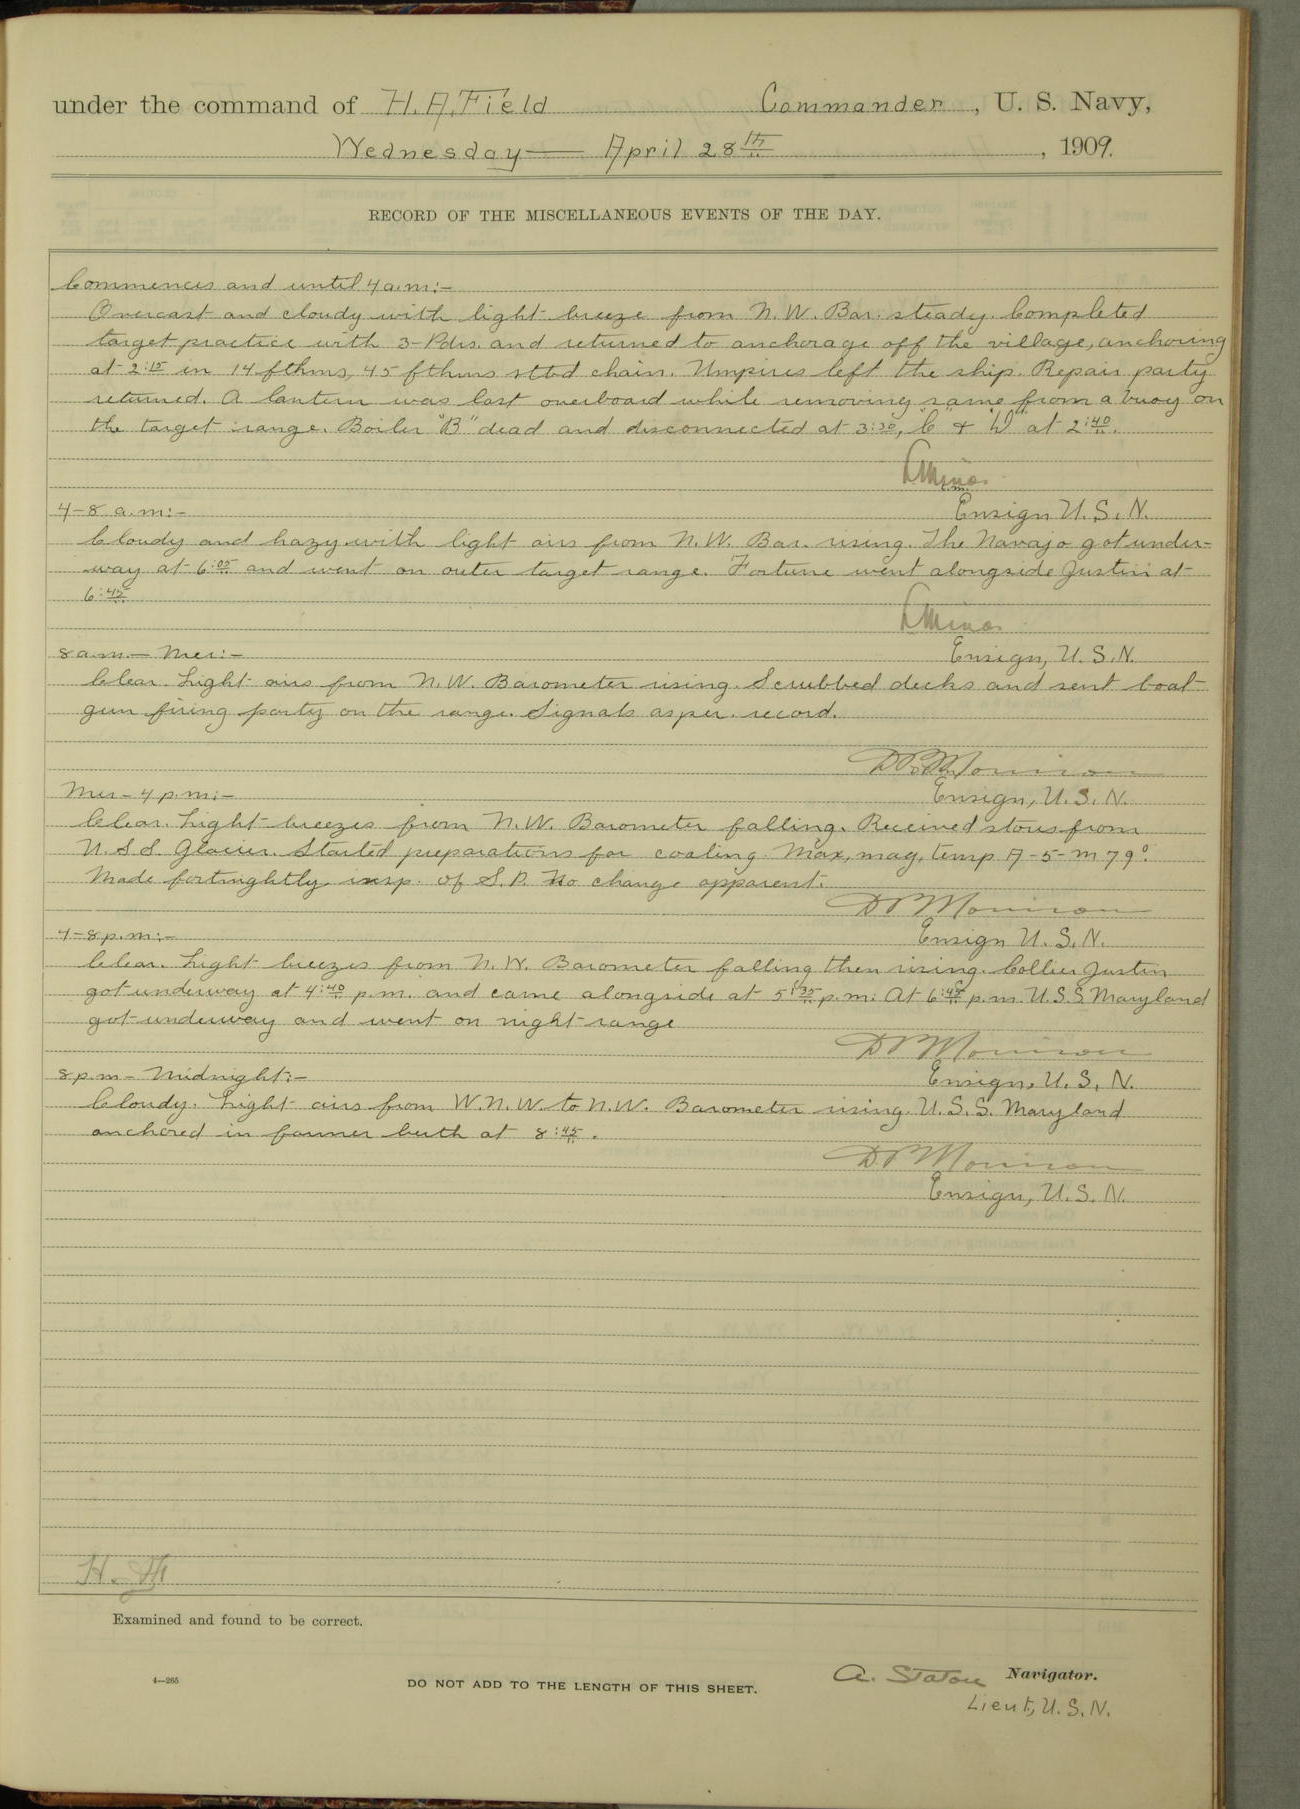 under the command of H.A.Field Commander, U. S. Navy,
Wednesday — April 28th, 1909.
RECORD OF THE MISCELLANEOUS EVENTS OF THE DAY.
Commences and until 4 a.m:-
Overcast and cloudy with light breeze from N.W. Bar. steady. Completed
target practice with 3-Pdrs. and returned to anchorage off the village, anchoring
at 2:15 in 14 fthms, 45 fthms stbd chain. Umpires left the ship. Repair party
returned. A lantern was lost overboard while removing same from a buoy on
the target range. Boiler "B" dead and disconnected at 3:30, "C" & "D" at 2:40.
Ensign U.S.N.
4-8 a.m:-
Cloudy and hazy with light airs from N.W. Bar. rising. The Navajo got under-
way at 6:05 and went on outer target range. Fortune went alongside Justin at
6:45
Ensign, U.S.N.
8 a.m.— Mer:-
Clear. Light airs from N.W. Barometer rising. Scrubbed decks and sent boat
gun firing party on the range. Signals as per record.
D B Morrison
Ensign, U.S.N.
Mer- 4 p.m:-
Clear. Light breezes from N.W. Barometer falling. Received stores from
U.S.S. Glacier. Started preparations for coaling. Max. mag. temp A-5-M 79°.
Made fortnightly insp. of S.P. No change apparent.
D B Morrison
Ensign U.S.N.
4-8 p.m:-
Clear. Light breezes from N.W. Barometer falling then rising. Collier Justin
got underway at 4:40 p.m. and came alongside at 5:35 p.m. At 6:45 p.m. U.S.S Maryland
got underway and went on night range
D B Morrison
Ensign, U.S.N.
8 p.m- Midnight:-
Cloudy. Light airs from W.N.W. to N.W. Barometer rising. U.S.S. Maryland
anchored in former berth at 8:45.
D B Morrison
Ensign, U.S.N.
Examined and found to be correct.
4—265
DO NOT ADD TO THE LENGTH OF THIS SHEET.
A. Staton Navigator.
Lieut, U.S.N.